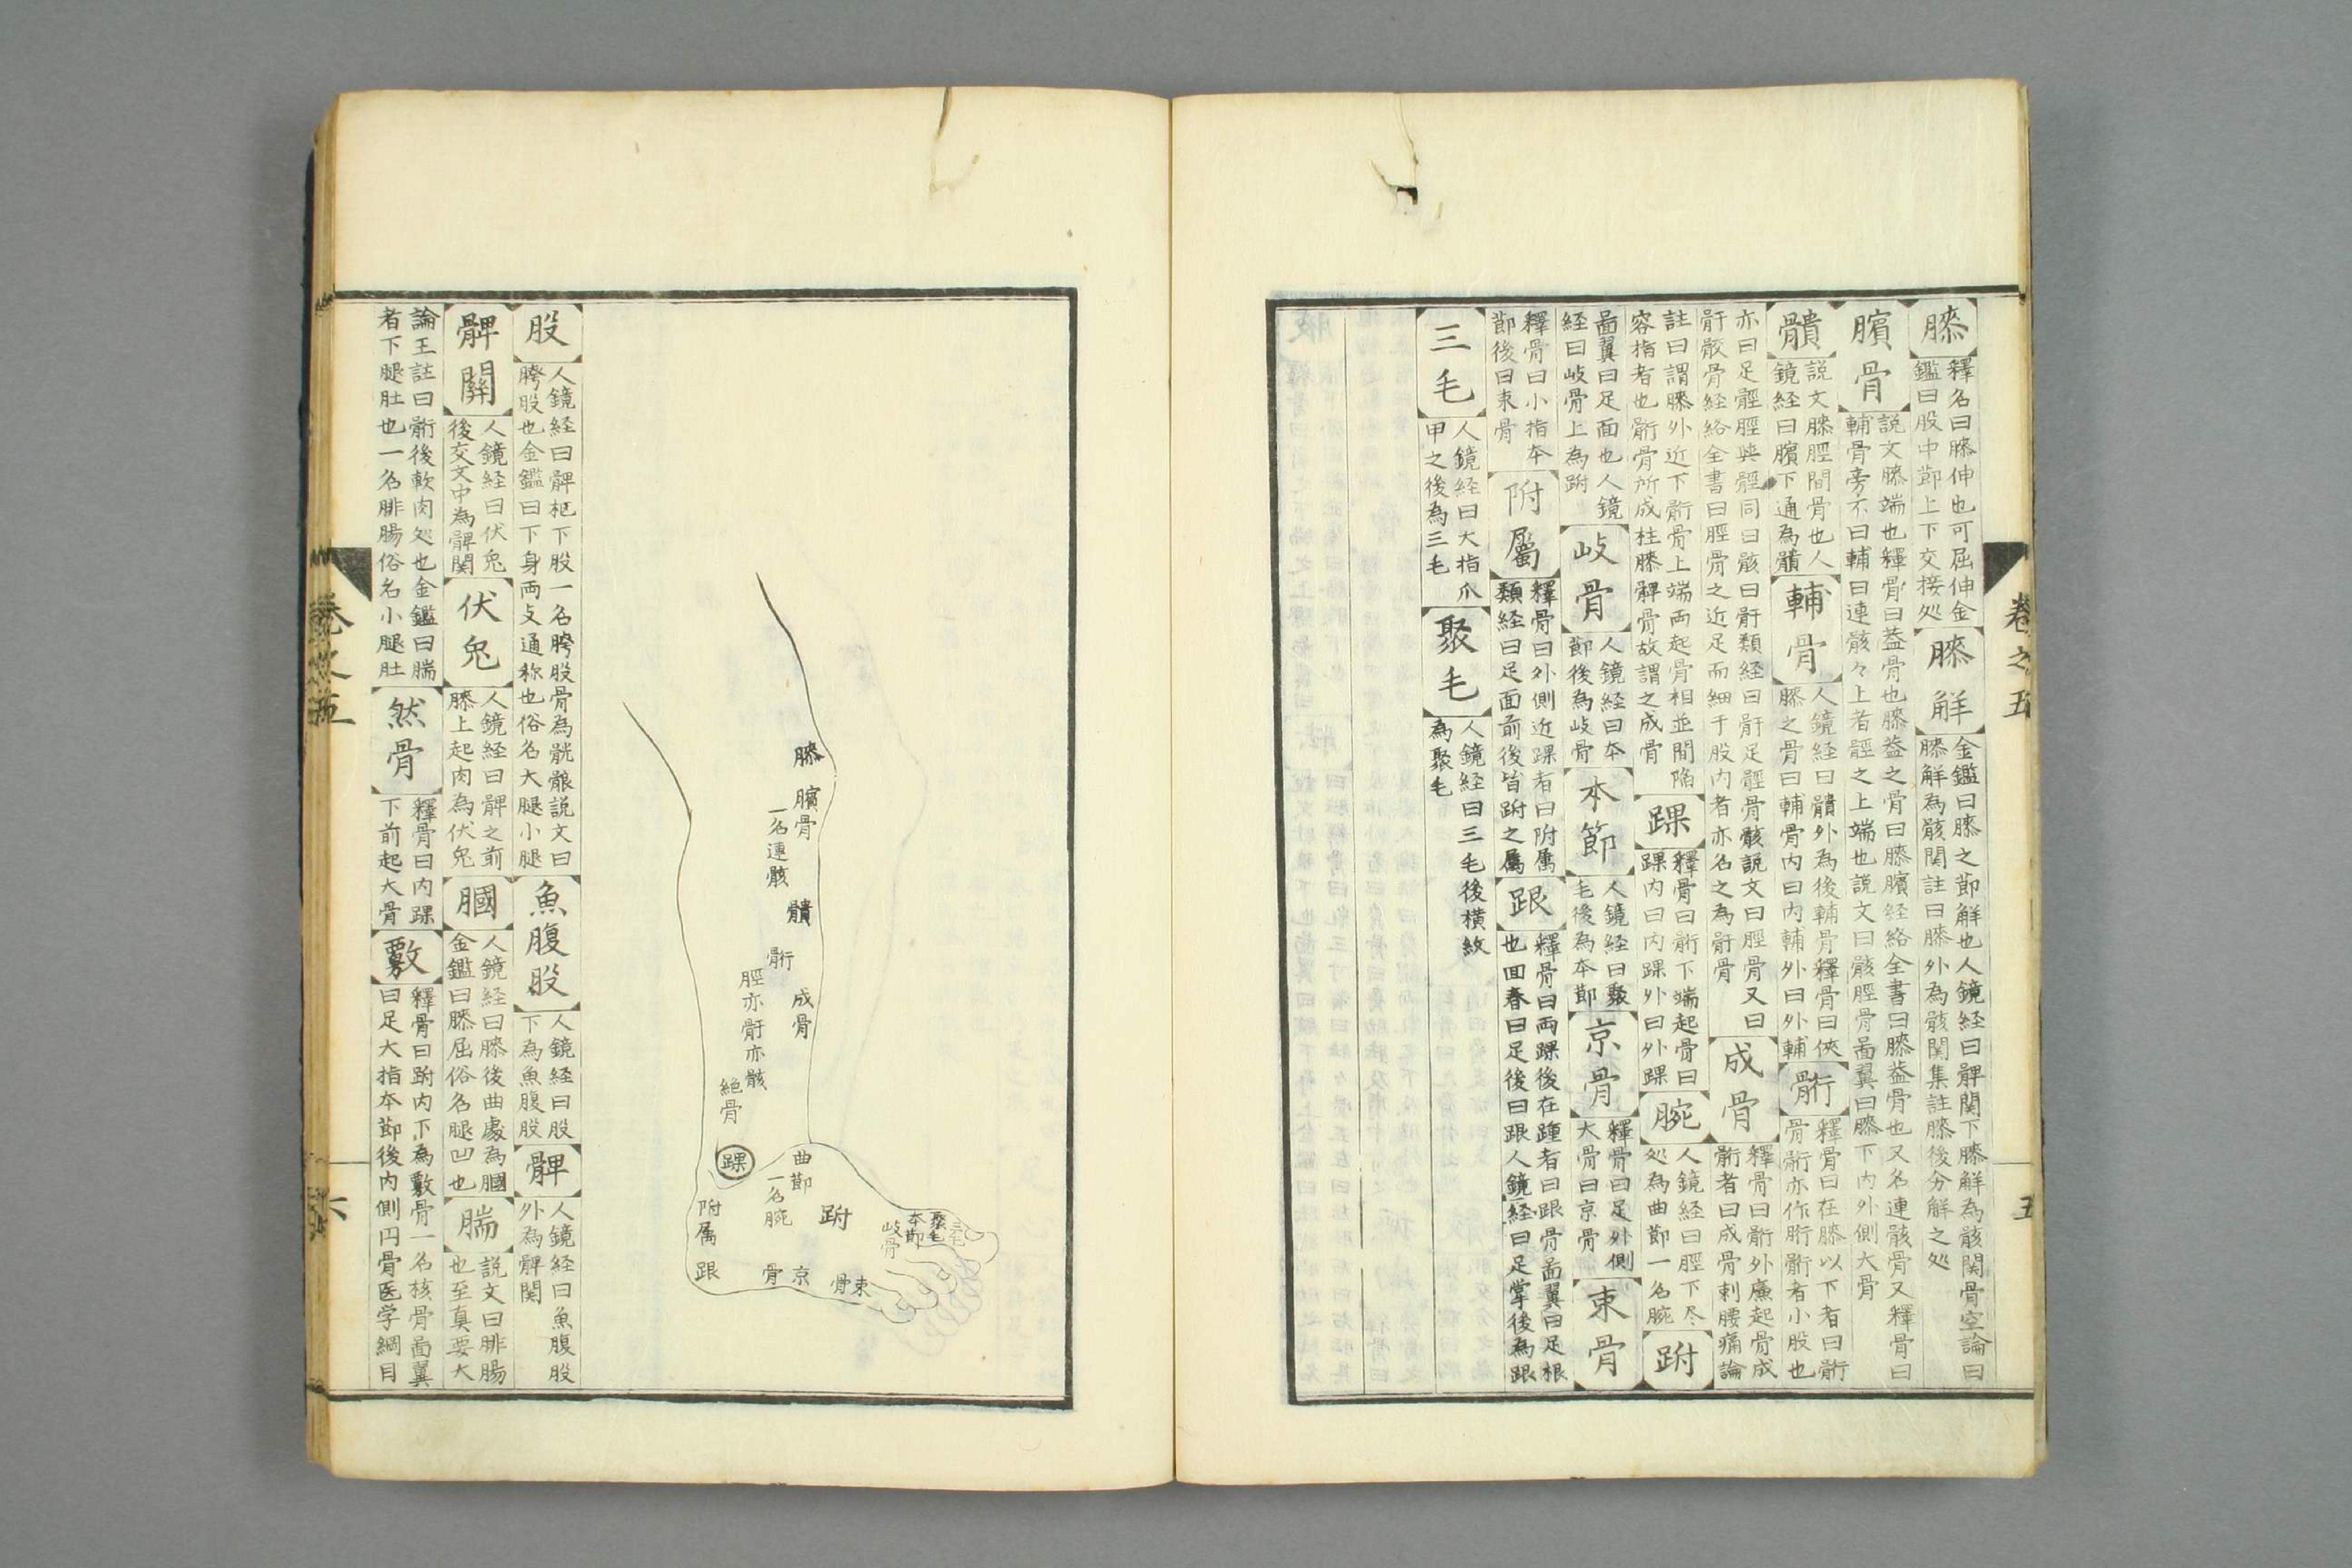 膝
釋名曰膝伸也可屈伸金
鑑曰股中節上下交接処
膝解
金鑑曰膝之節解也人鏡経曰髀関下膝解為骸関骨空論曰
膝解為骸関註曰膝外為骸関集註膝後分解之処
臏骨
説文膝端也釋骨曰蓋骨也膝蓋之骨曰膝臏経絡全書曰膝蓋骨也又名連骸骨又釋骨曰
輔骨旁不曰輔曰連骸々上者脛之上端也説文曰骸脛骨啚翼曰膝下内外側大骨
䯣
説文膝脛間骨也人
鏡経曰臏下通為䯣
輔骨
人鏡経曰䯣外為後輔骨釋骨曰俠
膝之骨曰輔骨内曰内輔外曰外輔
䯒
釋骨曰在膝以下者曰䯒
骨䯒亦作胻䯒者小股也
亦曰足脛脛與踁同曰骸曰骭類経曰骭足脛骨骸説文曰脛骨又曰
骭骹骨経絡全書曰脛骨之近足而細于股内者亦名之為骭骨
成骨
釋骨曰䯒外廉起骨成
䯒者曰成骨刺腰痛論
註曰謂膝外近下䯒骨上端両起骨相並間陥
容指者也䯒骨所成柱膝髀骨故謂之成骨
踝
釋骨曰䯒下端起骨曰
踝内曰内踝外曰外踝
腕
人鏡経曰脛下尽
処為曲節一名腕
跗
啚翼曰足面也人鏡
経曰岐骨上為跗
岐骨
人鏡経曰本
節後為岐骨
本節
人鏡経曰聚
毛後為本節
京骨
釋骨曰足外側
大骨曰京骨
束骨
釋骨曰小指本
節後曰束骨
附屬
釋骨曰外側近踝者曰附属
類経曰足面前後皆跗之属
跟
釋骨曰両踝後在踵者曰跟骨啚翼曰足根
也回春曰足後曰跟人鏡経曰足掌後為跟
三毛
人鏡経曰大指爪
甲之後為三毛
聚毛
人鏡経曰三毛後横紋
為聚毛
卷之五
五
膝
臏骨
一名連骸
䯣
䯒
成骨
脛亦骭亦骸
絶骨
踝
曲節
一名腕
跗
附属
跟
京骨
束骨
岐骨
本節
聚毛
三毛
股
人鏡経曰髀枢下股一名胯股骨為骯髋説文曰
胯股也金鑑曰下身両支通称也俗名大腿小腿
魚腹股
人鏡経曰股
下為魚腹股
髀
人鏡経曰魚腹股
外為髀関
髀關
人鏡経曰伏兎
後交文中為髀関
伏兎
人鏡経曰髀之前
膝上起肉為伏兎
膕
人鏡経曰膝後曲處為膕
金鑑曰膝屈俗名腿凹也
腨
説文曰腓腸
也至真要大
論王註曰䯒後軟肉処也金鑑曰腨
者下腿肚也一名腓腸俗名小腿肚
然骨
釋骨曰内踝
下前起大骨
覈
釋骨曰跗内下為覈骨一名核骨啚翼
曰足大指本節後内側円骨医学綱目
卷之五
六